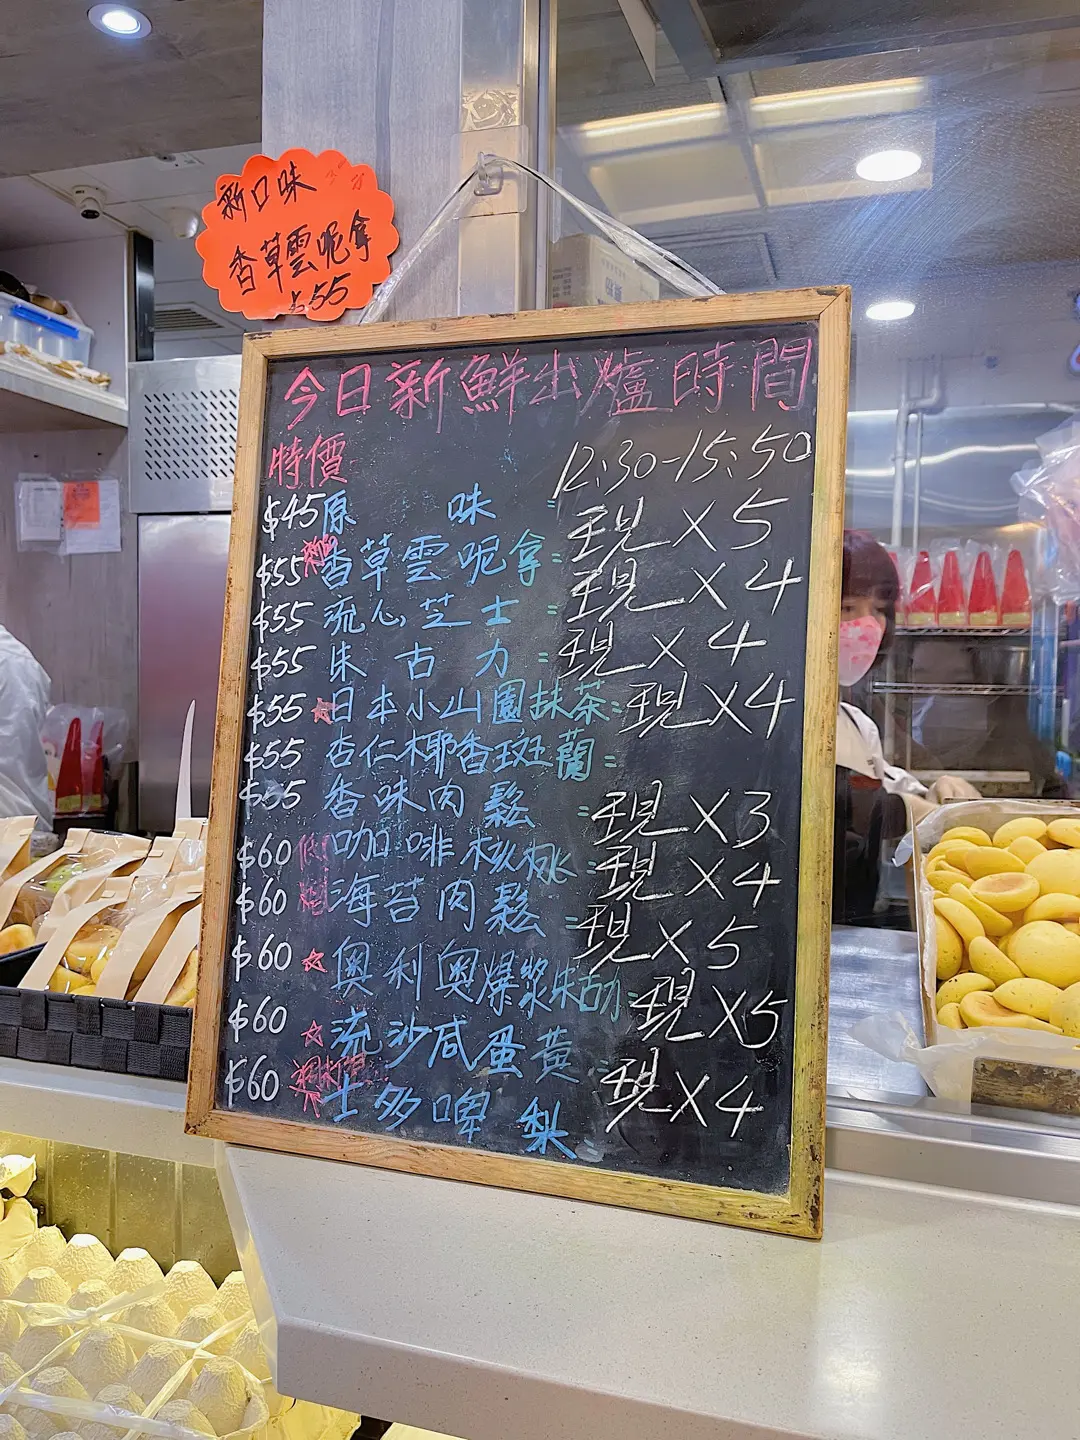 新口味
香草雲呢拿
$55
今日新鮮出爐時間
特價
12:30-15:50
$45 原味 = 現 X 5
$55 香草雲呢拿 = 現 X 4
$55 流心芝士 = 現 X 4
$55 朱古力 = 現 X 4
$55 ☆日本小山園抹茶 =
$55 杏仁椰香斑蘭 =
$55 香味肉鬆 = 現 X 3
$60 咖啡核桃 = 現 X 4
$60 海苔肉鬆 = 現 X 5
$60 ☆奧利奧爆漿朱古力 = 現 X 5
$60 ☆流沙咸蛋黃
$60 士多啤梨 = 現 X 4